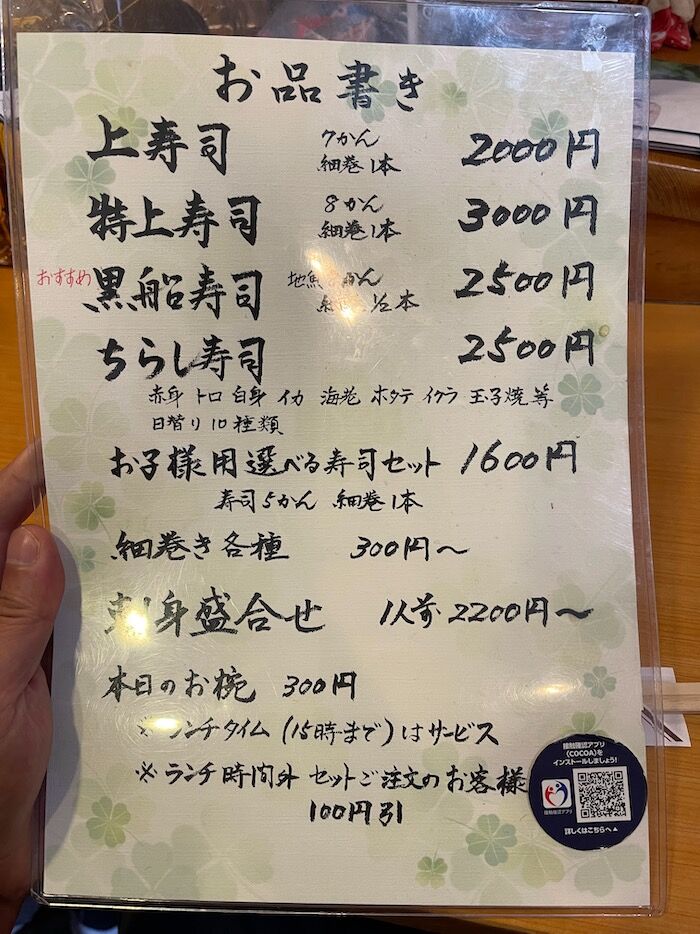 お品書き
上寿司 7かん 2000円
細巻1本
特上寿司 8かん 3000円
細巻1本
おすすめ 黒船寿司 地魚 かん 2500円
1/2本
ちらし寿司 2500円
赤身 トロ 白身 イカ 海老 ホタテ イクラ 玉子焼 等
日替り10種類
お子様用選べる寿司セット 1600円
寿司5かん 細巻1本
細巻き各種 300円〜
刺身盛合せ 1人前 2200円〜
本日のお椀 300円
※ランチタイム (15時まで)はサービス
※ランチ時間外 セットご注文のお客様
100円引
接触確認アプリ
(COCOA)を
インストールしましょう!
接触確認アプリ
詳しくはこちらへ▲